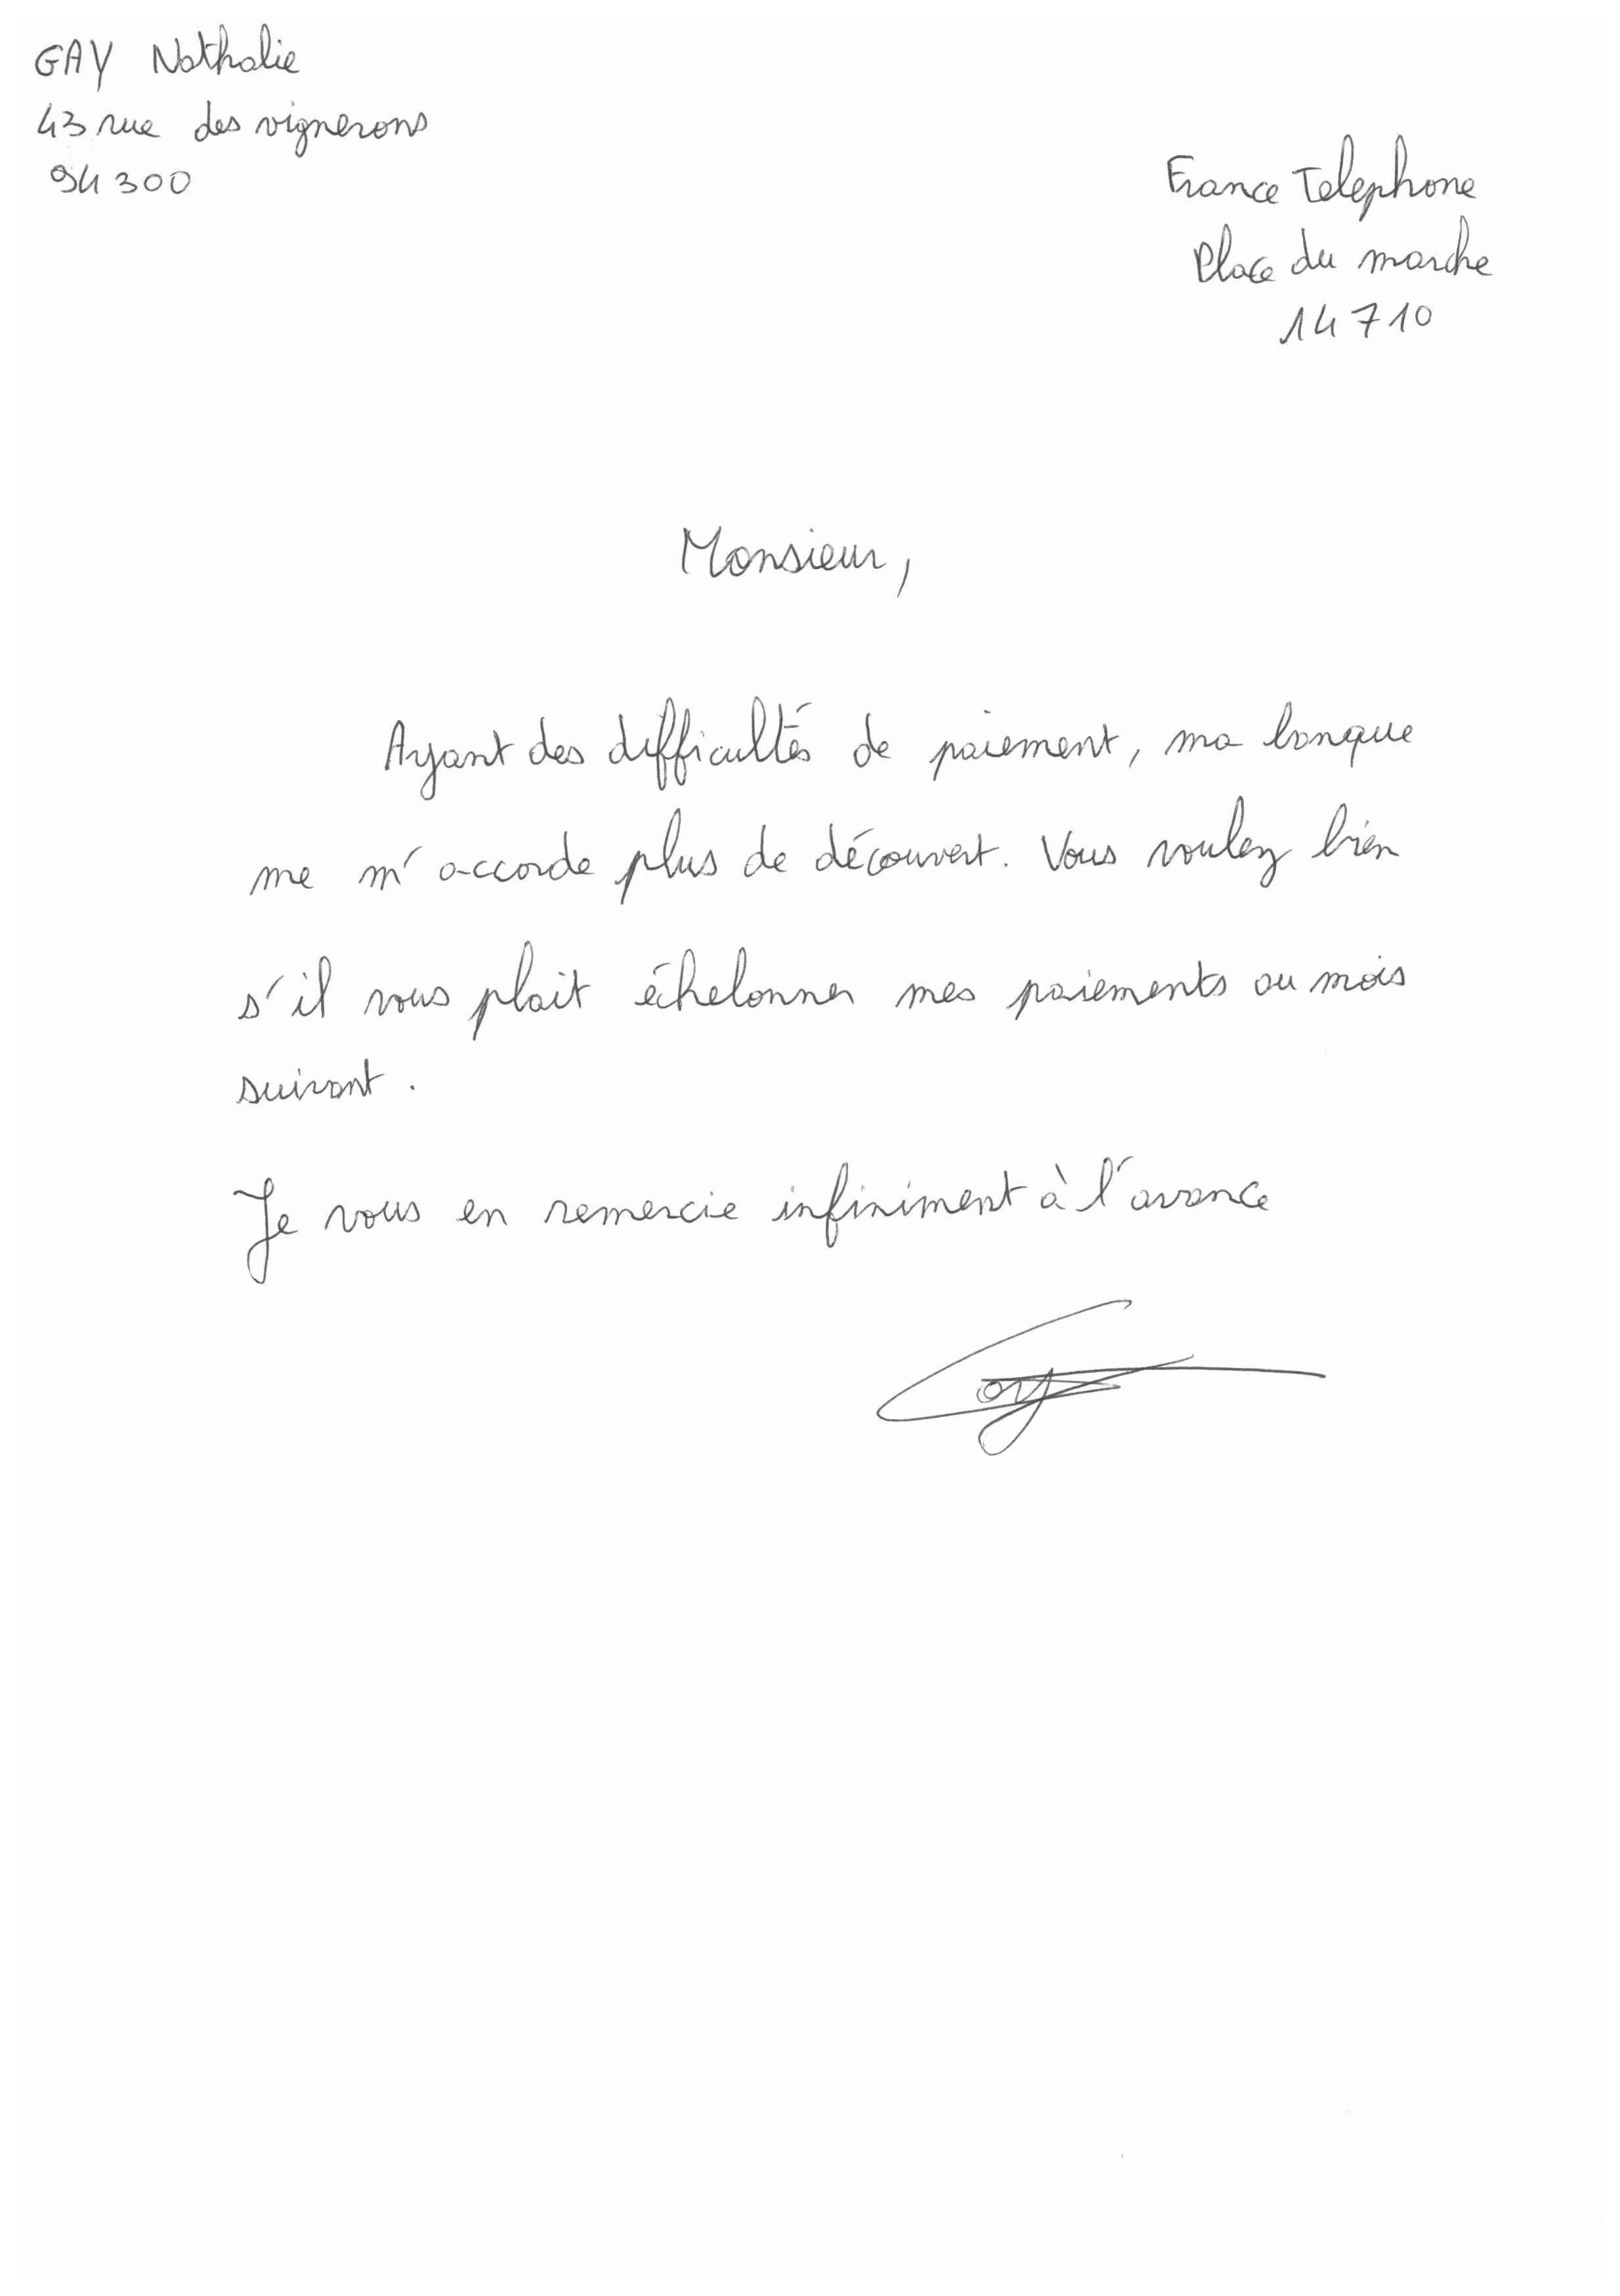 GAY Nathalie
43 rue des vignerons
94300
France Telephone
Place du marche
14710
Monsieur,
Ayant des difficultés de paiement, ma banque
me m'accorde plus de découvert. Vous voulez bien
s'il vous plait échelonner mes paiements au mois
suivant.
Je vous en remercie infiniment à l'avance
Gay